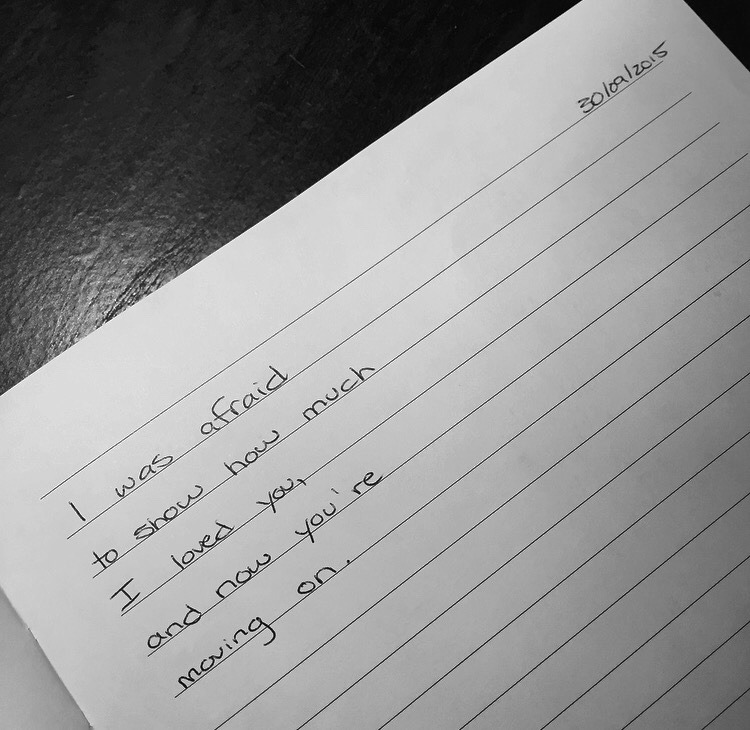 30/09/2015
I was afraid
to show how much
I loved you,
and now you're
moving on.